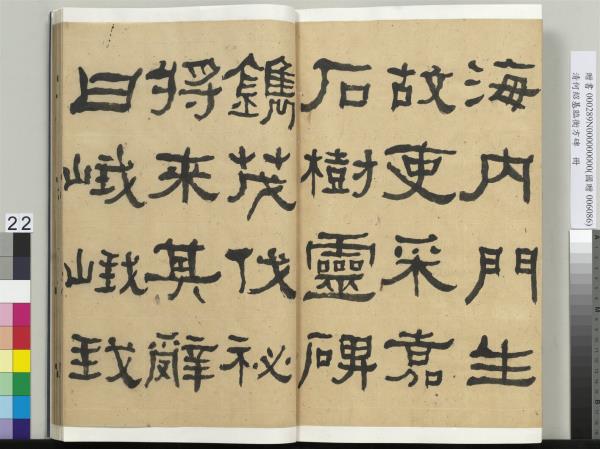 海内門生
故吏采嘉
石樹靈碑
鐫茂伐祕
将来其辭
曰峨峨我
贈書 000289N000000000(國贈 006086)
清何紹基臨衡方碑 冊
22